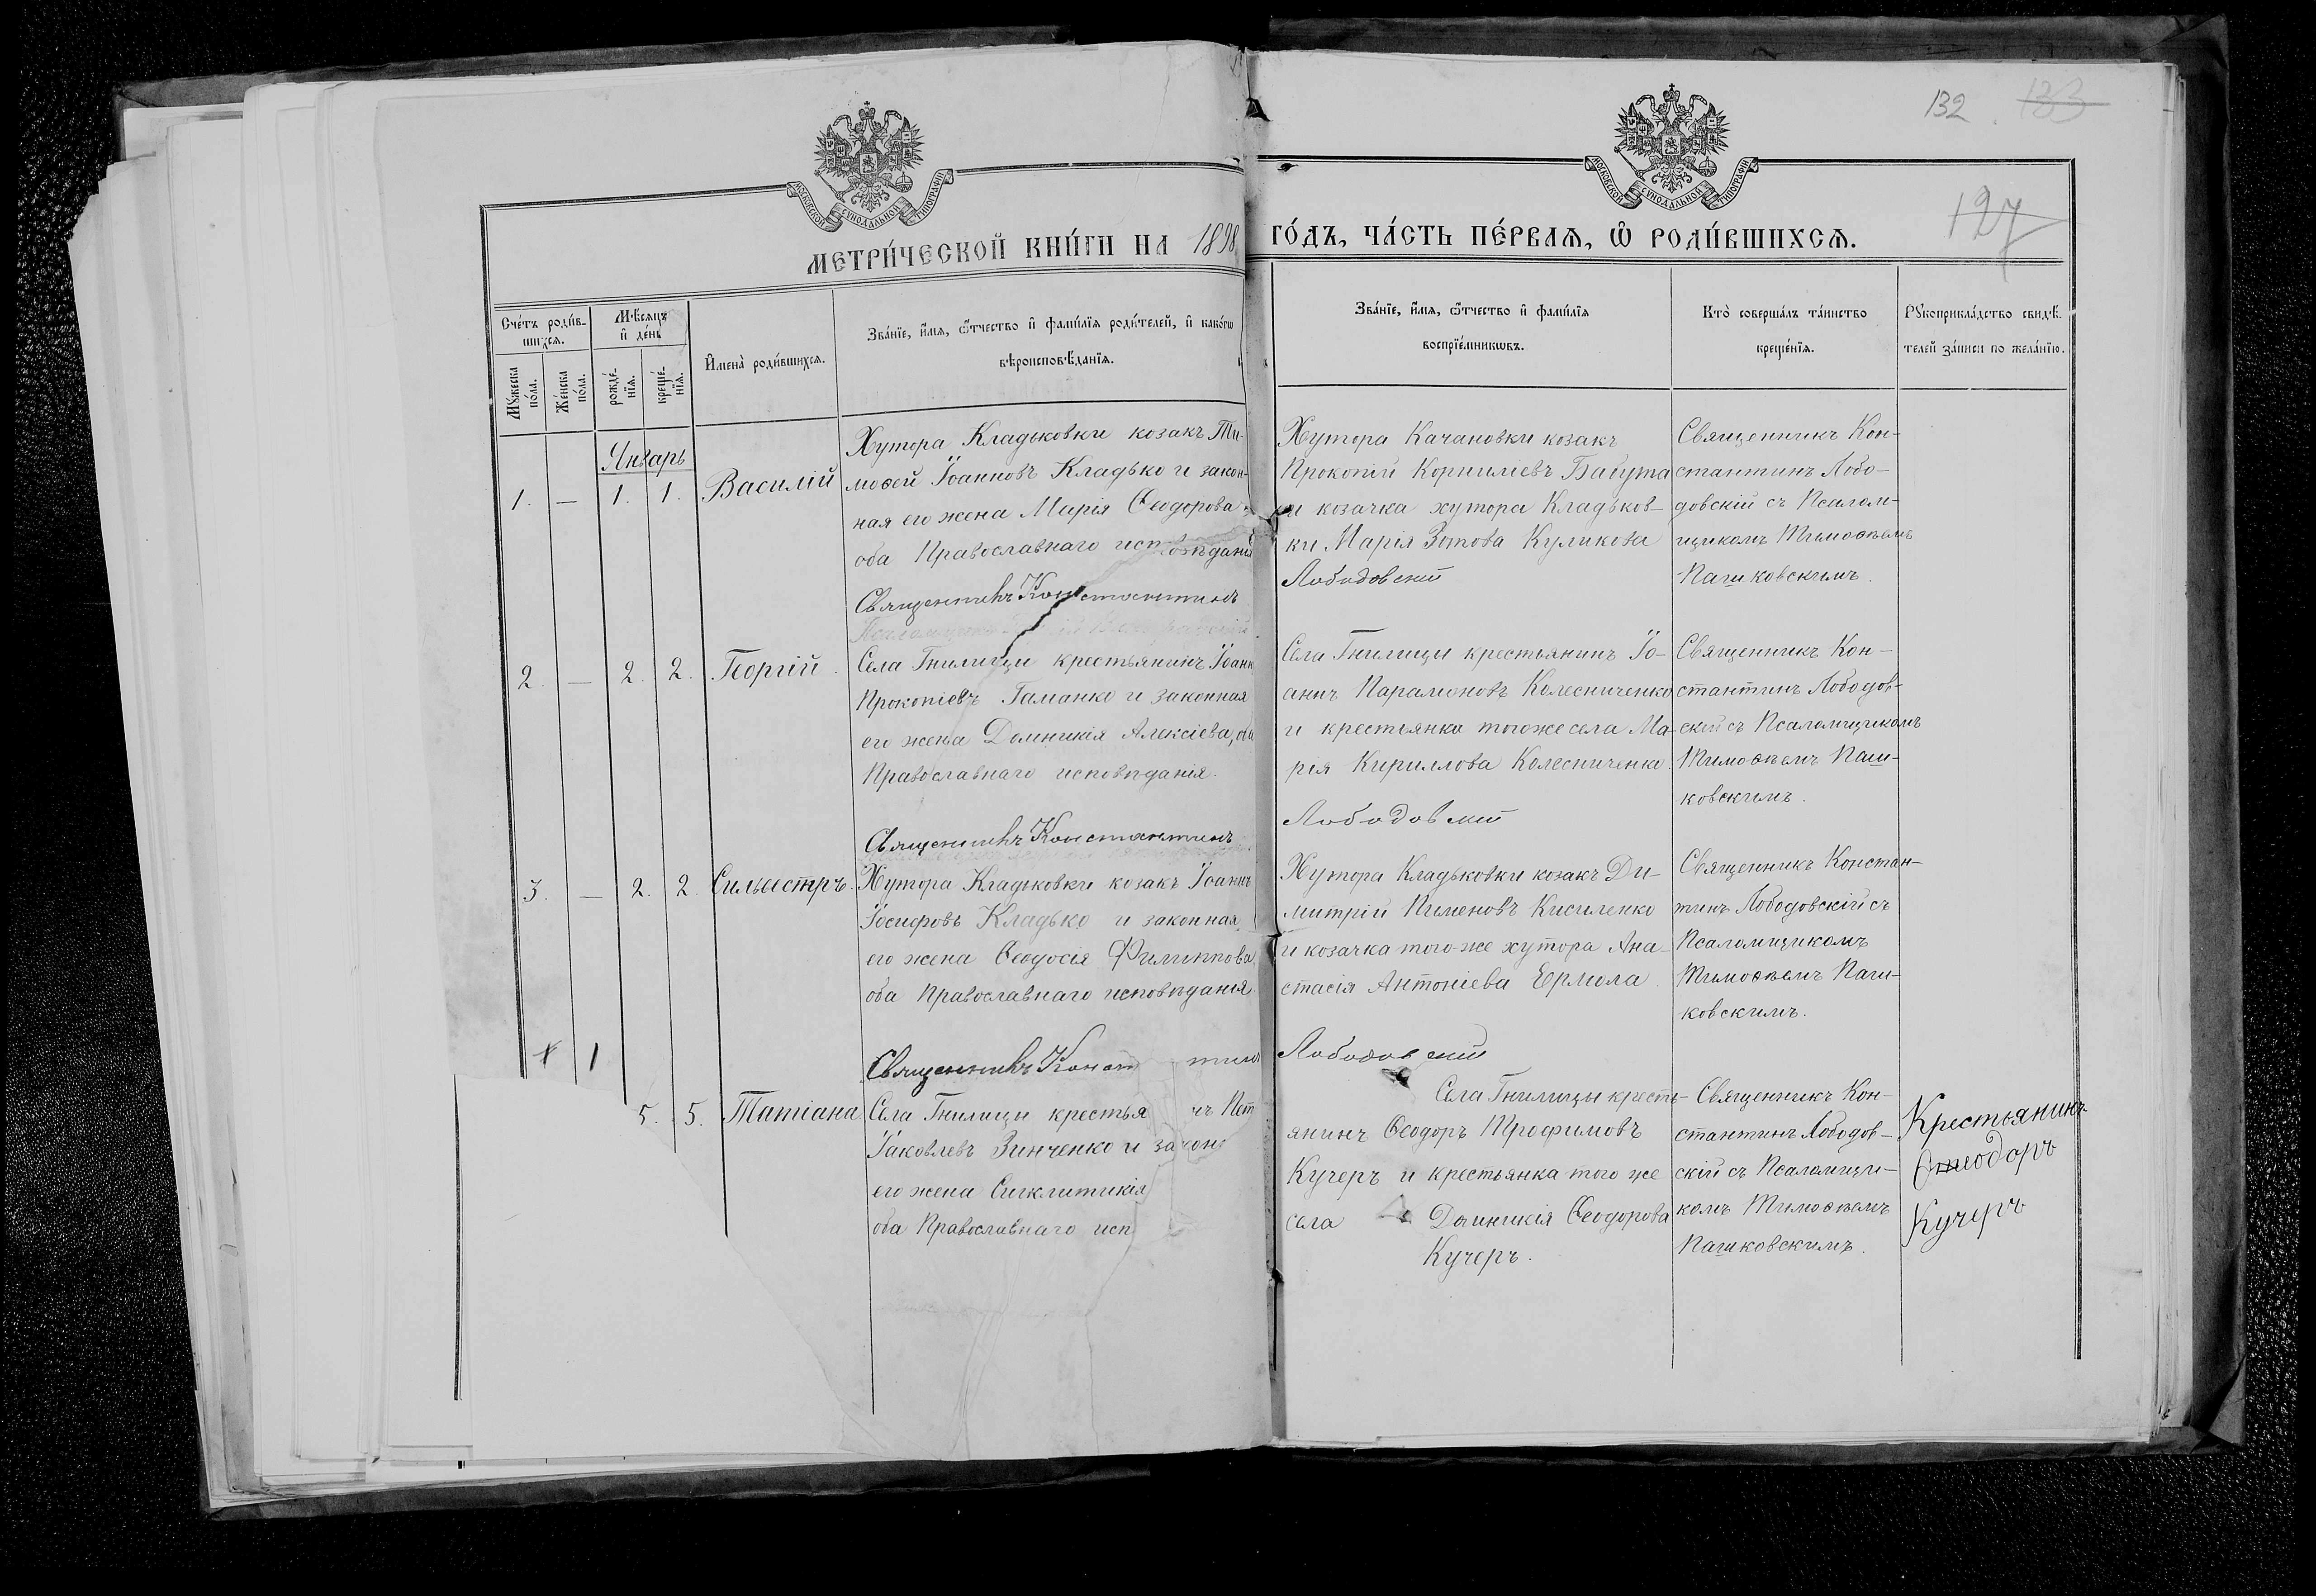 132 133
127
МОСКОВСКОЙ СѴНОДАЛЬНОЙ ТИПОГРАФІИ
МОСКОВСКОЙ СѴНОДАЛЬНОЙ ТИПОГРАФІИ
МЕТРИ́ЧЕСКОЙ КНИ́ГИ НА 1898
ГО́ДЪ, ЧА́СТЬ ПЕ́РВАѦ, Ѽ РОДИ́ВШИХСѦ.
Сче́тъ роди́в-
шихсѧ.
Мꙋ́жеска
по́ла.
Же́нска
по́ла.
Мѣ́сѧцъ
и҆ де́нь
рожде́-
нїѧ.
креще́-
нїѧ.
И҆мена̀ роди́вшихсѧ.
Зва́нїе, и҆́мѧ, ѻ҆́тчество и҆ фами́лїѧ роди́телей, и҆ како́гѡ
вѣроисповѣ́данїѧ.
Зва́нїе, и҆́мѧ, ѻ҆́тчество и҆ фами́лїѧ
воспрїе́мникѡвъ.
Кто̀ соверша́лъ та́инство
креще́нїѧ.
Рꙋкоприкла́дство свидѣ́-
телей за́писи по жела́нїю.
Январь
1. — 1. 1. Василій
Хутора Кладьковки козакъ Ти-
моѳей Іоанновъ Кладько и закон-
ная его жена Марія Ѳеодорова
оба Православнаго исповѣданія
Священникъ Константинъ
Хутора Качановки козакъ
Прокопій Корниліевъ Бабута
и козачка хутора Кладьков-
ки Марія Зотова Куликова
Лободовскій
Священникъ Кон-
стантинъ Лобо-
довскій съ Псалом-
щикомъ Тимоѳѣемъ
Пашковскимъ.
2. — 2. 2. Георгій.
Села Гнилицы крестьянинъ Іоанн
Прокопіевъ Гаманко и законная
его жена Домникія Алексіева, оба
Православнаго исповѣданія.
Священникъ Константинъ
Села Гнилицы крестьянинъ Іо-
аннъ Парамоновъ Колесниченко
и крестьянка того же села Ма-
рія Кириллова Колесниченка.
Лободовскій
Священникъ Кон-
стантинъ Лободов-
скій съ Псаломщикомъ
Тимоѳѣемъ Паш-
ковскимъ.
3. — 2. 2. Сильвестръ.
Хутора Кладьковки козакъ Іоаннъ
Іосифовъ Кладько и законная
его жена Ѳеодосія Филиппова
оба Православнаго исповѣданія
Священникъ Конст тинъ
Хутора Кладьковки козакъ Ди-
митрій Пименовъ Кисиленко
и козачка того-же хутора Ана-
стасія Антоніева Ермола.
Лободовскій
Священникъ Констан-
тинъ Лободовскій съ
Псаломщикомъ
Тимоѳѣемъ Паш-
ковскимъ.
1
5. 5. Татіана
Села Гнилицы крестья нъ Пет
Іаковлевъ Зинченко и закон
его жена Сигклитикія
оба Православнаго исп
Села Гнилицы кресть-
янинъ Ѳеодоръ Трофимовъ
Кучеръ и крестьянка того же
села Домникія Ѳеодорова
Кучеръ.
Священникъ Кон-
стантинъ Лободов-
скій съ Псаломщи-
комъ Тимоѳѣемъ
Пашковскимъ.
Крестьянинъ
Кучеръ